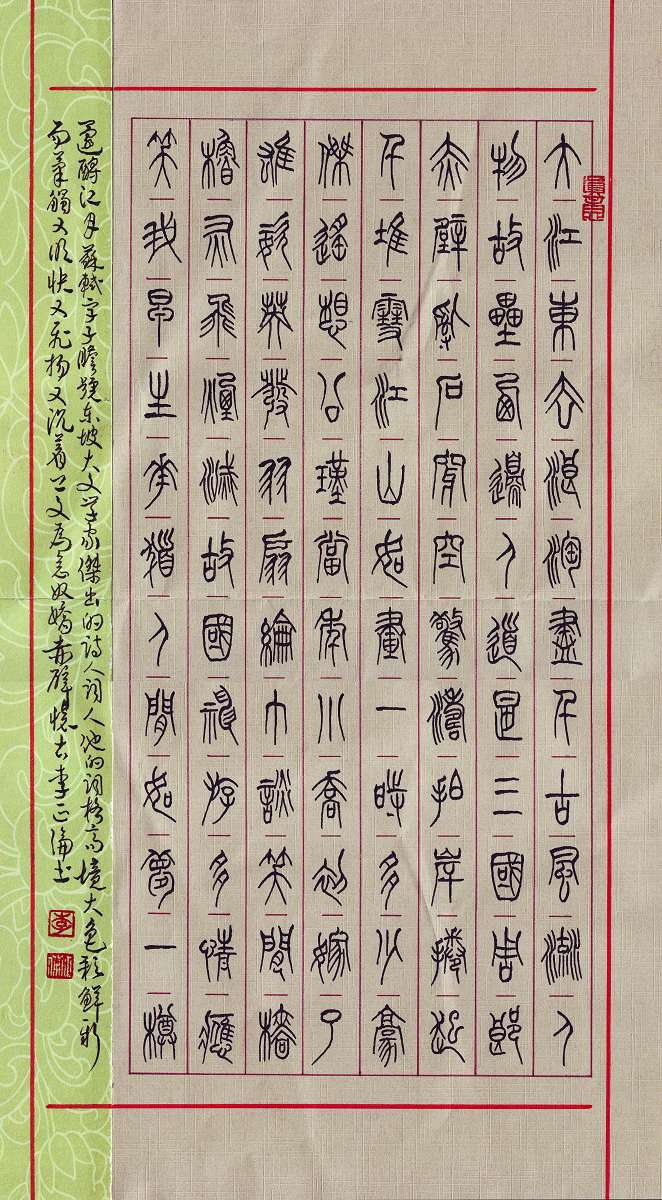 大江東去浪淘盡千古風流人
物故壘西邊人道是三國周郎
赤壁亂石穿空驚濤拍岸捲起
千堆雪江山如畫一時多少豪
傑遙想公瑾當年小喬初嫁了
雄姿英發羽扇綸巾談笑間檣
櫓灰飛煙滅故國神游多情應
笑我早生華髮人間如夢一樽
還酹江月蘇軾字子瞻號东坡大文学家傑出的詩人詞人他的詞格高境大色彩鮮新
而筆觸又明快又飛揚又沉着上文為念奴嬌赤壁懷古李正書
李